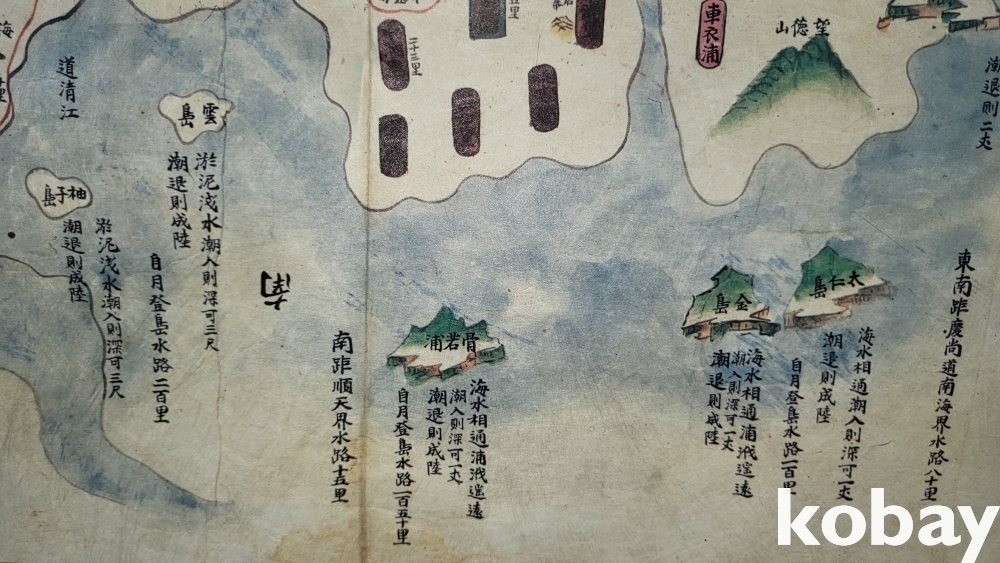 潮退則二丈
望德山
車衣浦
五里
二十三里
東南距慶尚道南海界水路八十里
太仁島
海水相通潮入則深可一丈
潮退則成陸
自月登島水路一百里
金島
海水相通浦溆遙遠
潮入則深可一丈
潮退則成陸
骨若浦
海水相通浦溆遙遠
潮入則深可一丈
潮退則成陸
自月登島水路一百五十里
南距順天界水路十五里
南
雲島
淤泥淺水潮入則深可三尺
潮退則成陸
自月登島水路二百里
道清江
柚子島
淤泥淺水潮入則深可三尺
潮退則成陸
kobay